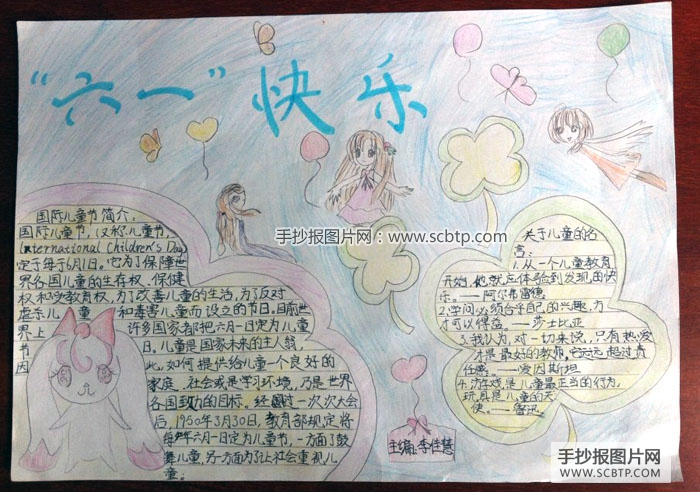 “六一”快乐
国际儿童节简介：
国际儿童节，(又称儿童节，
International Children's Day)
定于每年6月1日。它为了保障世
界各国儿童的生存权、保健
权和受教育权，为了改善儿童的生活，为了反对
虐杀儿童和毒害儿童而设立的节日。目前世
界上许多国家都把六月一日定为儿童
节日。儿童是国家未来的主人翁，
因此，如何提供给儿童一个良好的
家庭、社会或是学习环境，乃是世界
各国致力的目标。经过一次次大会
后，1950年3月30日，教育部规定将
每年六月一日定为儿童节，一方面了鼓
舞儿童，另一方面为了让社会重视儿
童。
关于儿童的名
言：
1、从一个儿童教育
开始，他就应体验到发现的快
乐。——阿尔弗雷德
2、学问必须合乎自己的兴趣，方
才可以得益。——莎士比亚
3、我认为对一切来说，只有热爱
才是最好的教师，它远远超过责
任感。——爱因斯坦
4、游戏是儿童最正当的行为，
玩具是儿童的天
使。——鲁迅
主编：李佳慧
手抄报图片网：www.scbtp.com
手抄报图片网
SCBTP.COM
手抄报图片网
SCBTP.COM